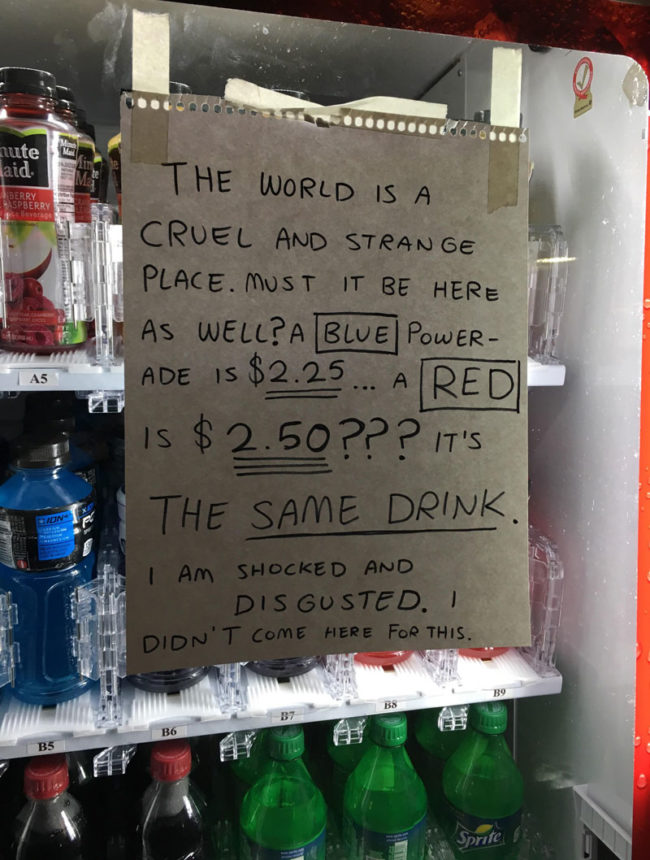 THE WORLD IS A
CRUEL AND STRANGE
PLACE. MUST IT BE HERE
AS WELL? A BLUE POWER-
ADE IS $2.25... A RED
IS $2.50??? IT'S
THE SAME DRINK.
I AM SHOCKED AND
DISGUSTED. I
DIDN'T COME HERE FOR THIS.
Minute
Maid
A5
ION
B5
B6
B7
B8
B9
Sprite